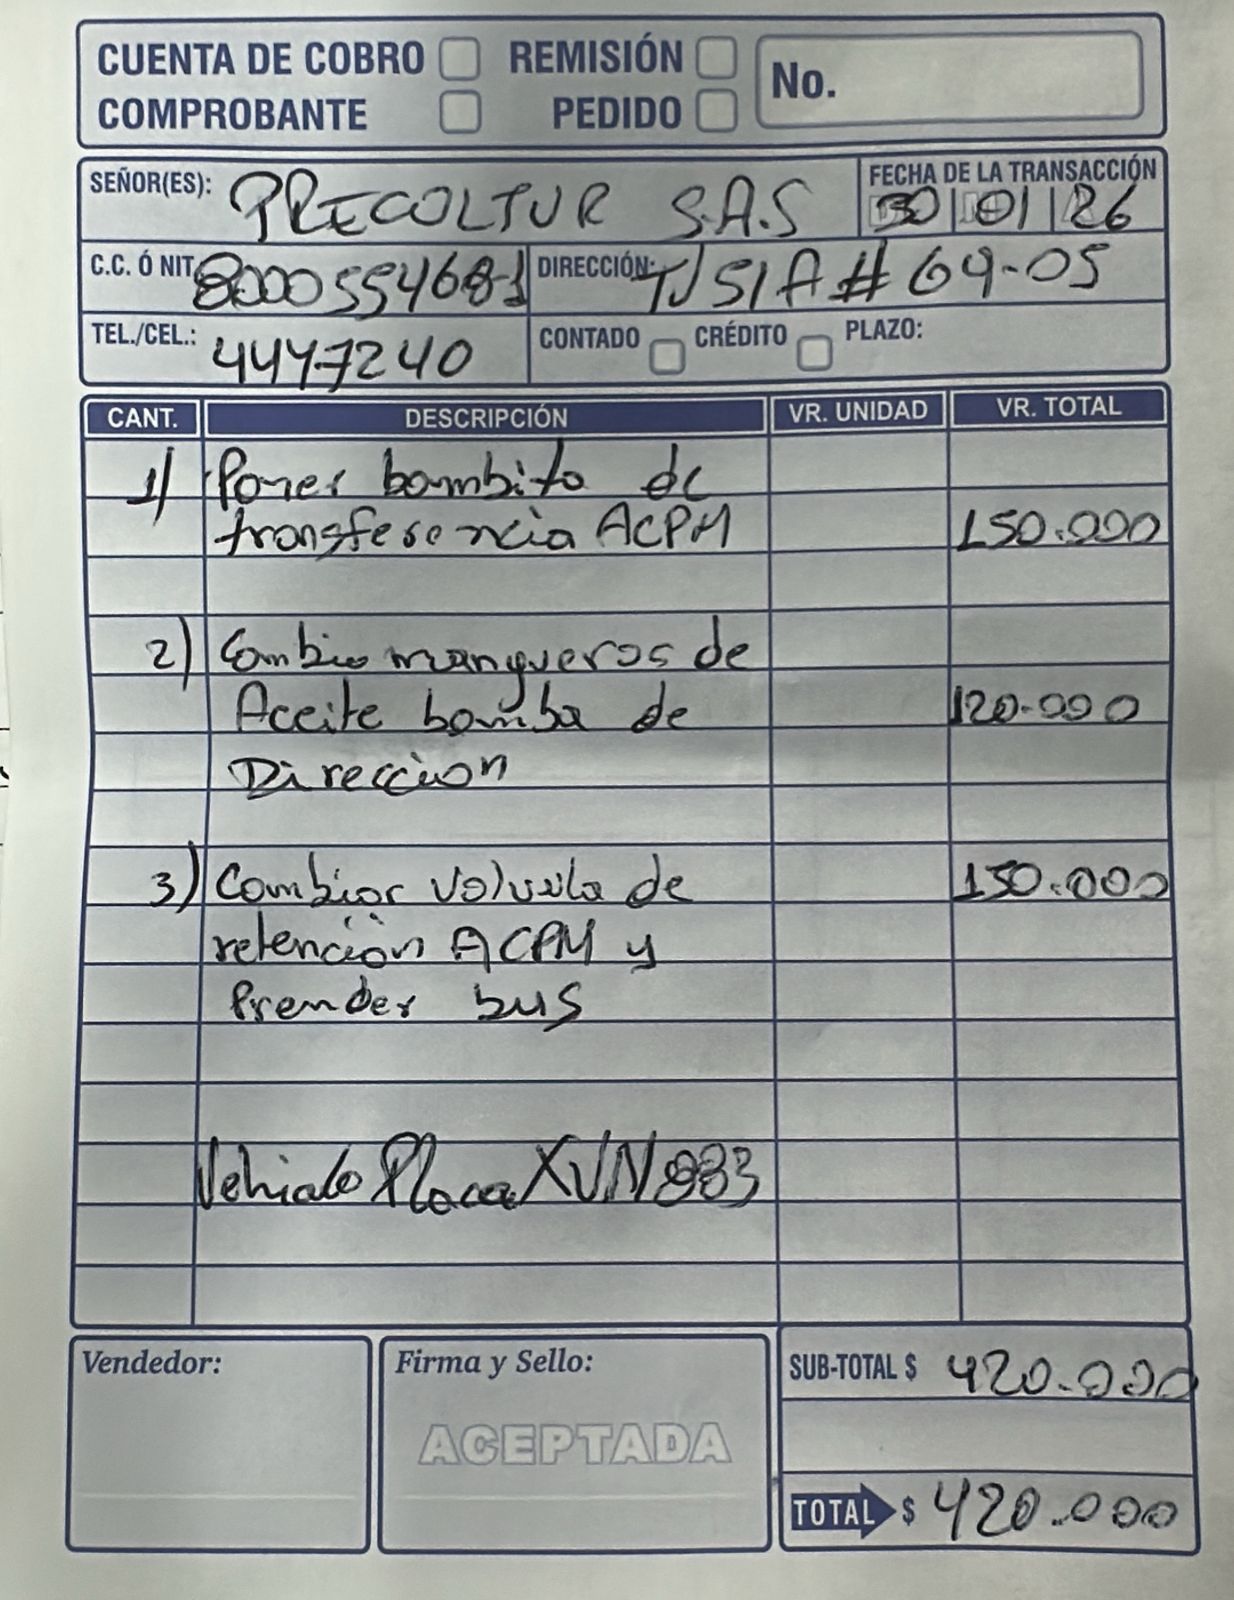 CUENTA DE COBRO REMISIÓN No.
COMPROBANTE PEDIDO
SEÑOR(ES): PRECOLTUR S.A.S FECHA DE LA TRANSACCIÓN
30 01 26
C.C. Ó NIT 8000554684-1 DIRECCIÓN: T/ 51A # 69-05
TEL./CEL.: 4447240 CONTADO CRÉDITO PLAZO:
CANT. DESCRIPCIÓN VR. UNIDAD VR. TOTAL
1) Poner bombita de
transferencia ACPM 150.000
2) Cambio mangueras de
Aceite bomba de 120.000
Dirección
3) Cambiar volvula de 150.000
retención ACPM y
Prender bus
Vehiculo Placa XVN883
Vendedor: Firma y Sello: SUB-TOTAL $ 420.000
ACEPTADA
TOTAL $ 420.000